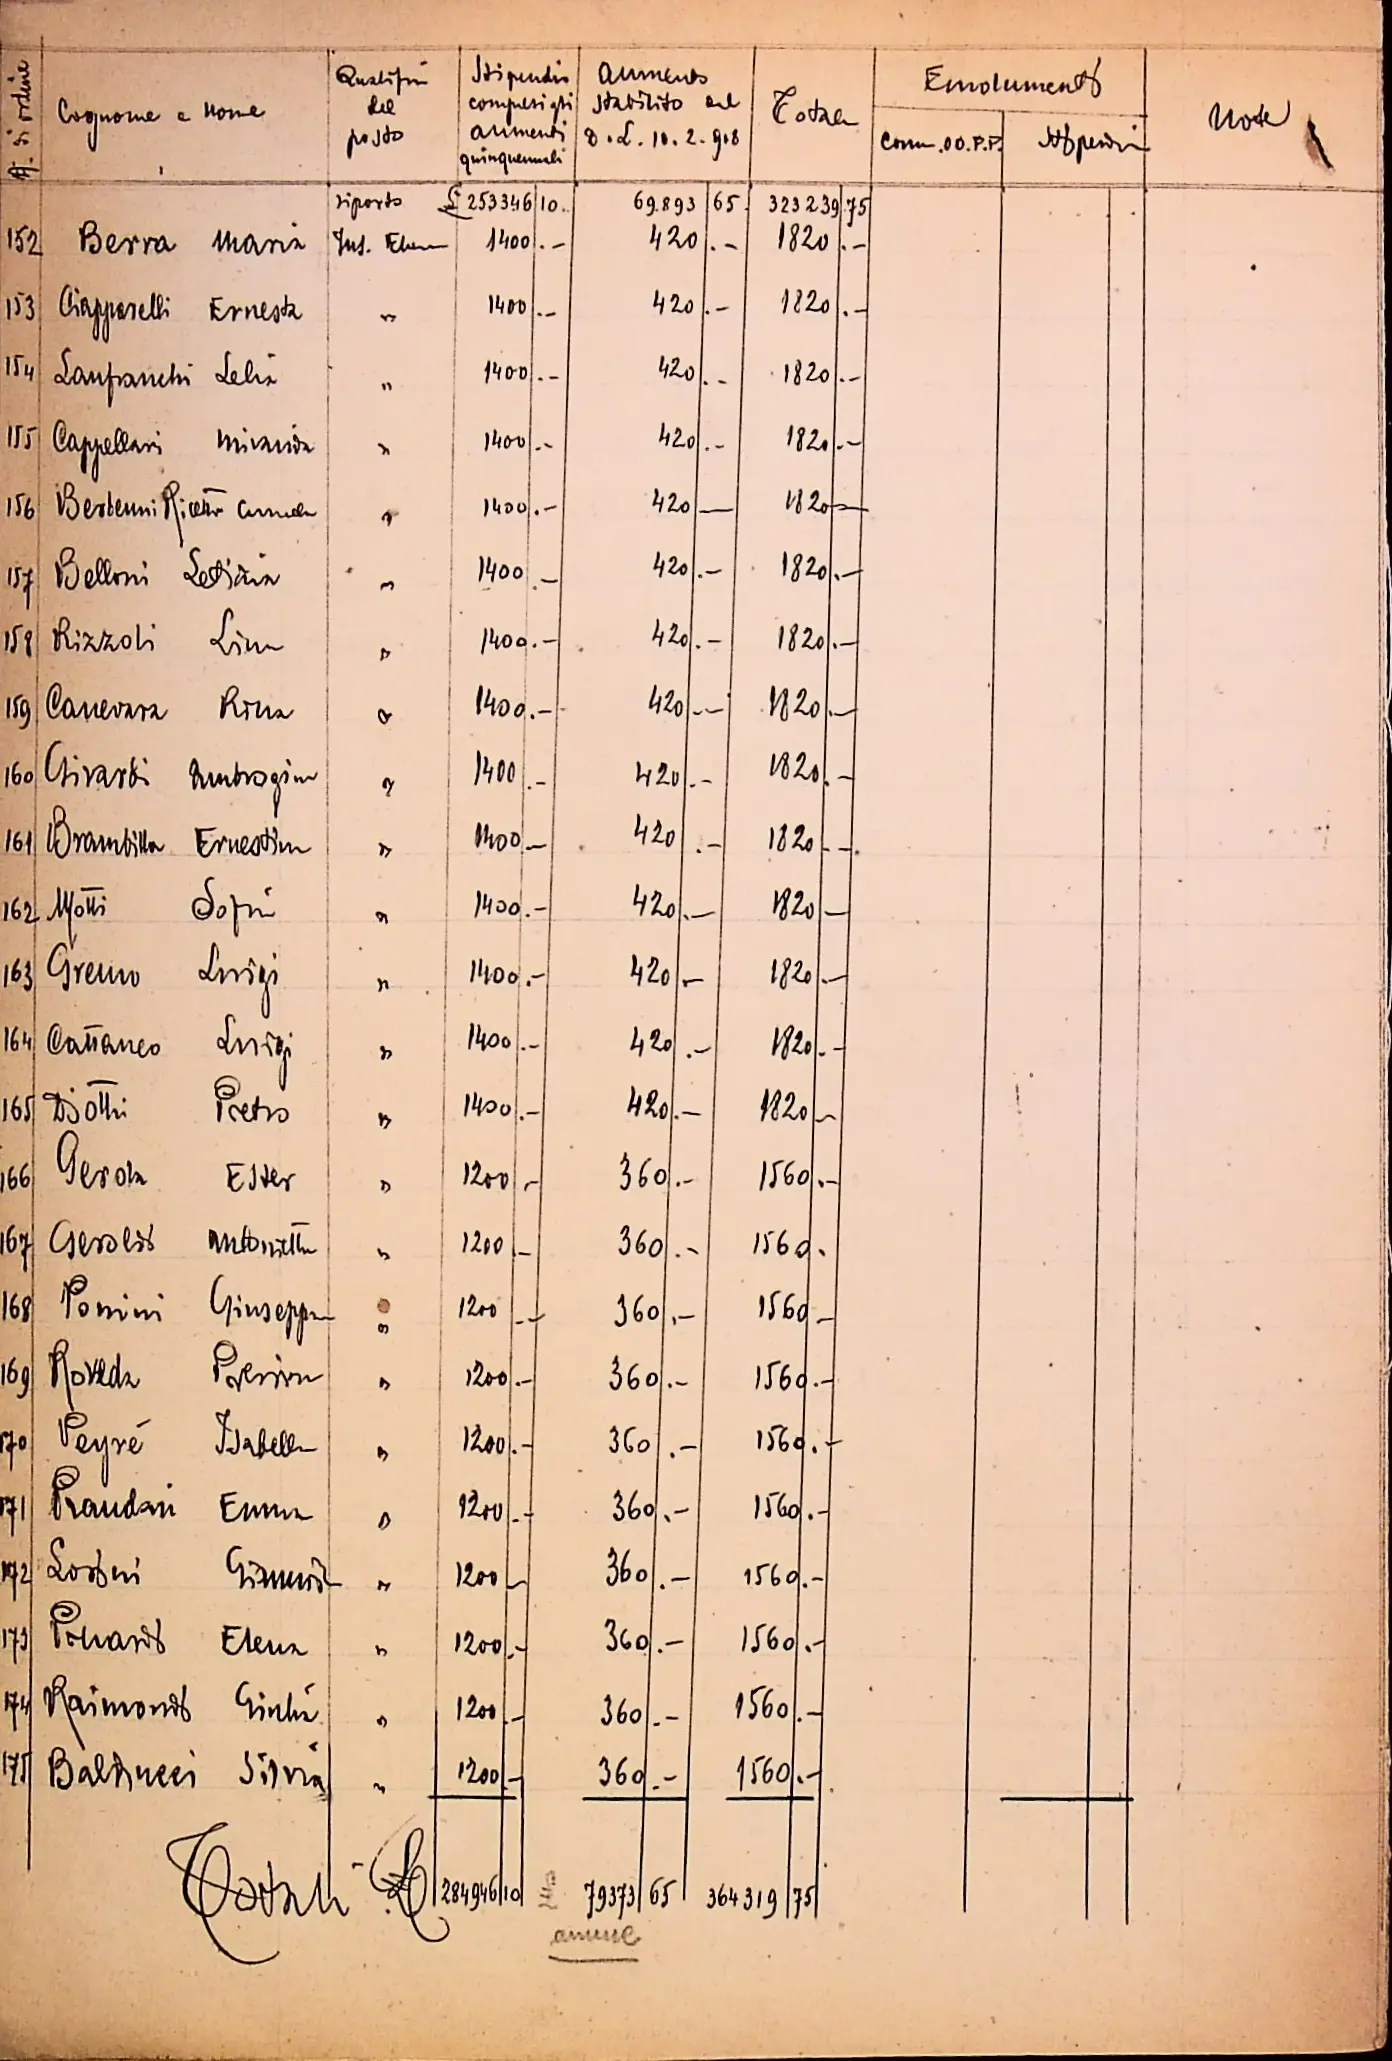 N. di ordine
Cognome e Nome
Qualifica del posto
Stipendio compresi gli aumenti quinquennali
Aumento stabilito dal D.L. 10.2.918
Totale
Emolumenti
Com. OO.P.P.
Note
riporto £ 253346 10. 69.893 65. 323239 75
152 Berra Maria Ins. Elem 1400.- 420.- 1820.-
153 Ciapparelli Ernesta " 1400.- 420.- 1820.-
154 Lanfranchi Lelia " 1400.- 420.- 1820.-
155 Cappellari Miranda " 1400.- 420.- 1820.-
156 Berbenni Ricetti " 1400.- 420 — 1820 —
157 Belloni Letizia " 1400.- 420.- 1820.-
158 Rizzoli Lina " 1400.- 420.- 1820.-
159 Canevara Rina " 1400.- 420.- 1820.-
160 Girardi Ambrogina " 1400.- 420.- 1820.-
161 Brambilla Ernestina " 1400.- 420.- 1820.-
162 Motti Sofia " 1400.- 420.- 1820 -
163 Gremo Luigi " 1400.- 420.- 1820.-
164 Cattaneo Luigi " 1400.- 420.- 1820.-
165 Diotti Pietro " 1400.- 420.- 1820 -
166 Gerola Ester " 1200.- 360.- 1560.-
167 Geroldi Antonietta " 1200.- 360.- 1560.
168 Ponzini Giuseppina " 1200.- 360.- 1560.-
169 Roveda " 1200.- 360.- 1560.-
170 Peyré Isabella " 1200.- 360.- 1560.-
171 Prandini Emma " 1200.- 360.- 1560.-
172 " 1200 - 360.- 1560.-
173 Elena " 1200.- 360.- 1560.-
174 Raimondi Giulia " 1200.- 360.- 1560.-
175 Balducci Silvia " 1200.- 360.- 1560.-
Totali £ 284946 10 79373 65 364319 75
annue